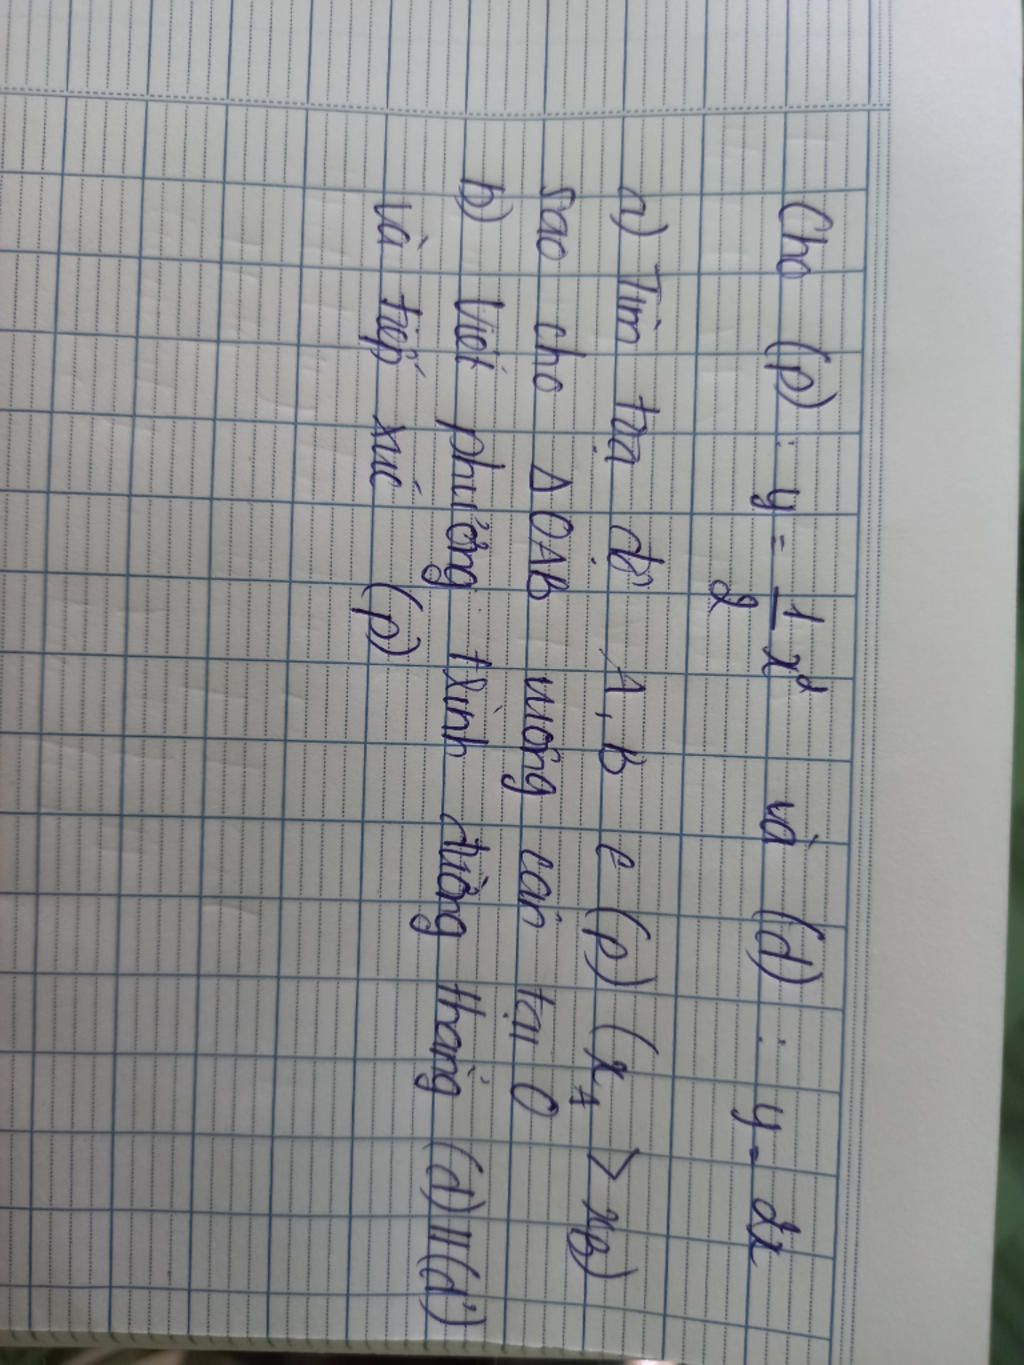 Cho (P) : y = 1/2 x² và (d) : y = 2x
a) Tìm toạ độ A, B ∈ (P) (x_A > x_B)
sao cho Δ OAB vuông cân tại O
b) Viết phương trình đường thẳng (d) // (d')
và tiếp xúc (P)